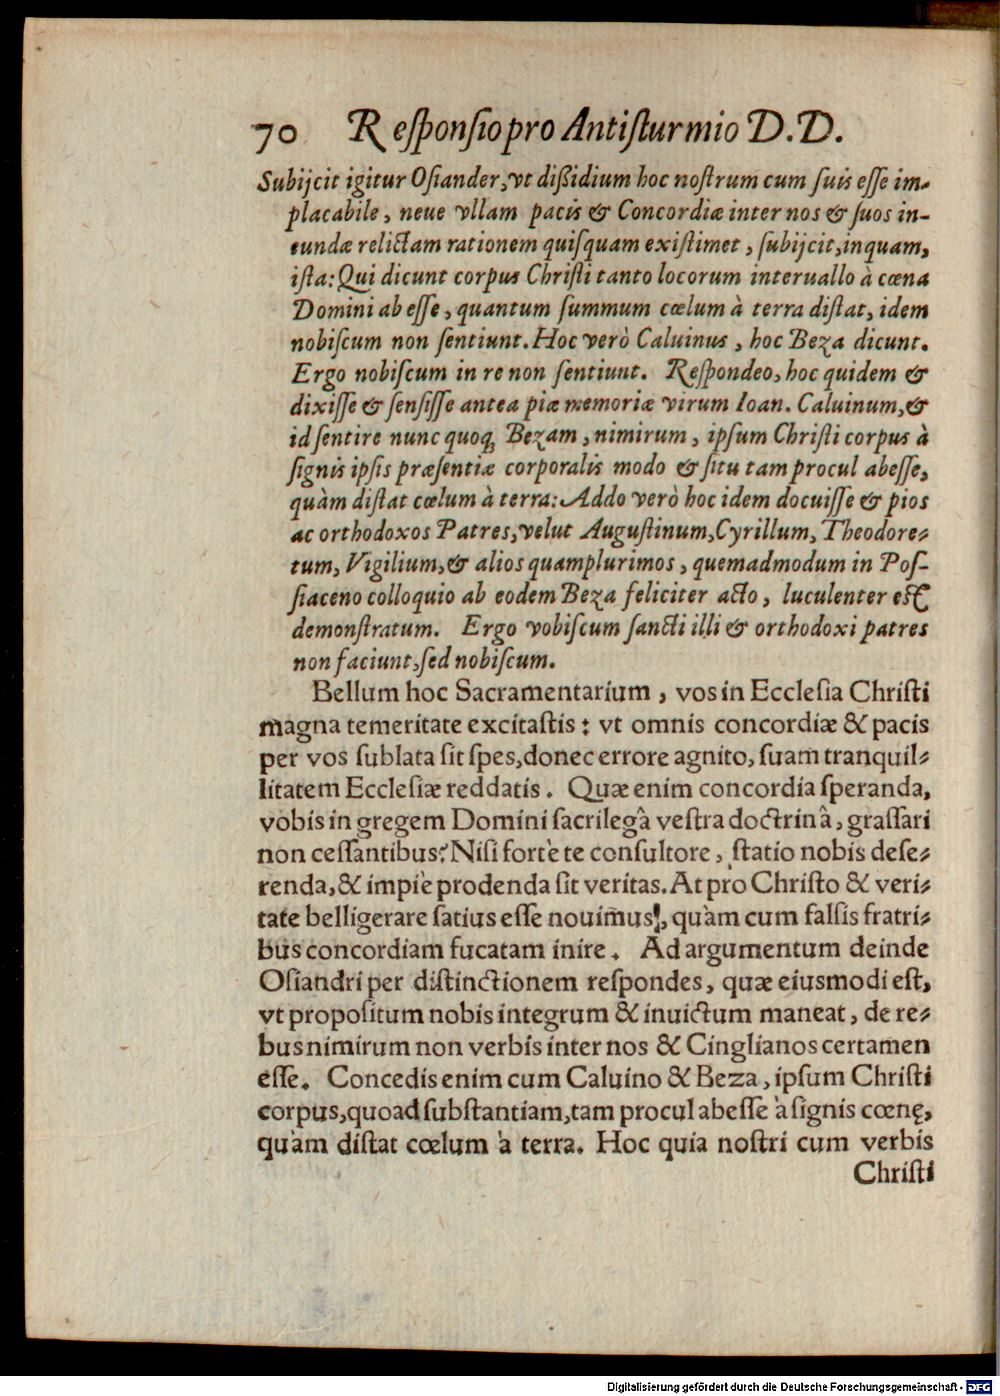 70 Reſponſio pro Antiſturmio D.D.
Subijcit igitur Oſiander, vt dißidium hoc noſtrum cum ſuis eſſe im-
placabile, neue vllam pacis & Concordiæ inter nos & ſuos in-
eundæ relictam rationem quiſquam exiſtimet, ſubijcit, inquam,
iſta: Qui dicunt corpus Chriſti tanto locorum interuallo à cœna
Domini abeſſe, quantum ſummum cœlum à terra diſtat, idem
nobiſcum non ſentiunt. Hoc verò Caluinus, hoc Beza dicunt.
Ergo nobiſcum in re non ſentiunt. Reſpondeo, hoc quidem &
dixiſſe & ſenſiſſe antea piæ memoriæ virum Ioan. Caluinum, &
id ſentire nunc quoq; Bezam, nimirum, ipſum Chriſti corpus à
ſignis ipſis præſentiæ corporalis modo & ſitu tam procul abeſſe,
quàm diſtat cœlum à terra: Addo verò hoc idem docuiſſe & pios
ac orthodoxos Patres, velut Auguſtinum, Cyrillum, Theodore-
tum, Vigilium, & alios quamplurimos, quemadmodum in Poſ-
ſiaceno colloquio ab eodem Beza feliciter acto, luculenter eſt
demonſtratum. Ergo vobiſcum ſancti illi & orthodoxi patres
non faciunt, ſed nobiſcum.
Bellum hoc Sacramentarium, vos in Eccleſia Chriſti
magna temeritate excitaſtis: vt omnis concordiæ & pacis
per vos ſublata ſit ſpes, donec errore agnito, ſuam tranquil-
litatem Eccleſiæ reddatis. Quæ enim concordia ſperanda,
vobis in gregem Domini ſacrilegâ veſtra doctrinâ, graſſari
non ceſſantibus? Niſi fortè te conſultore, ſtatio nobis deſe-
renda, & impiè prodenda ſit veritas. At pro Chriſto & veri-
tate belligerare ſatius eſſe nouimus, quàm cum falſis fratri-
bus concordiam fucatam inire. Ad argumentum deinde
Oſiandri per diſtinctionem reſpondes, quæ eiusmodi eſt,
vt propoſitum nobis integrum & inuictum maneat, de re-
bus nimirum non verbis inter nos & Cinglianos certamen
eſſe. Concedis enim cum Caluino & Beza, ipſum Chriſti
corpus, quoad ſubſtantiam, tam procul abeſſe à ſignis cœnę,
quàm diſtat cœlum à terra. Hoc quia noſtri cum verbis
Chriſti
Digitalisierung gefördert durch die Deutsche Forschungsgemeinschaft - DFG